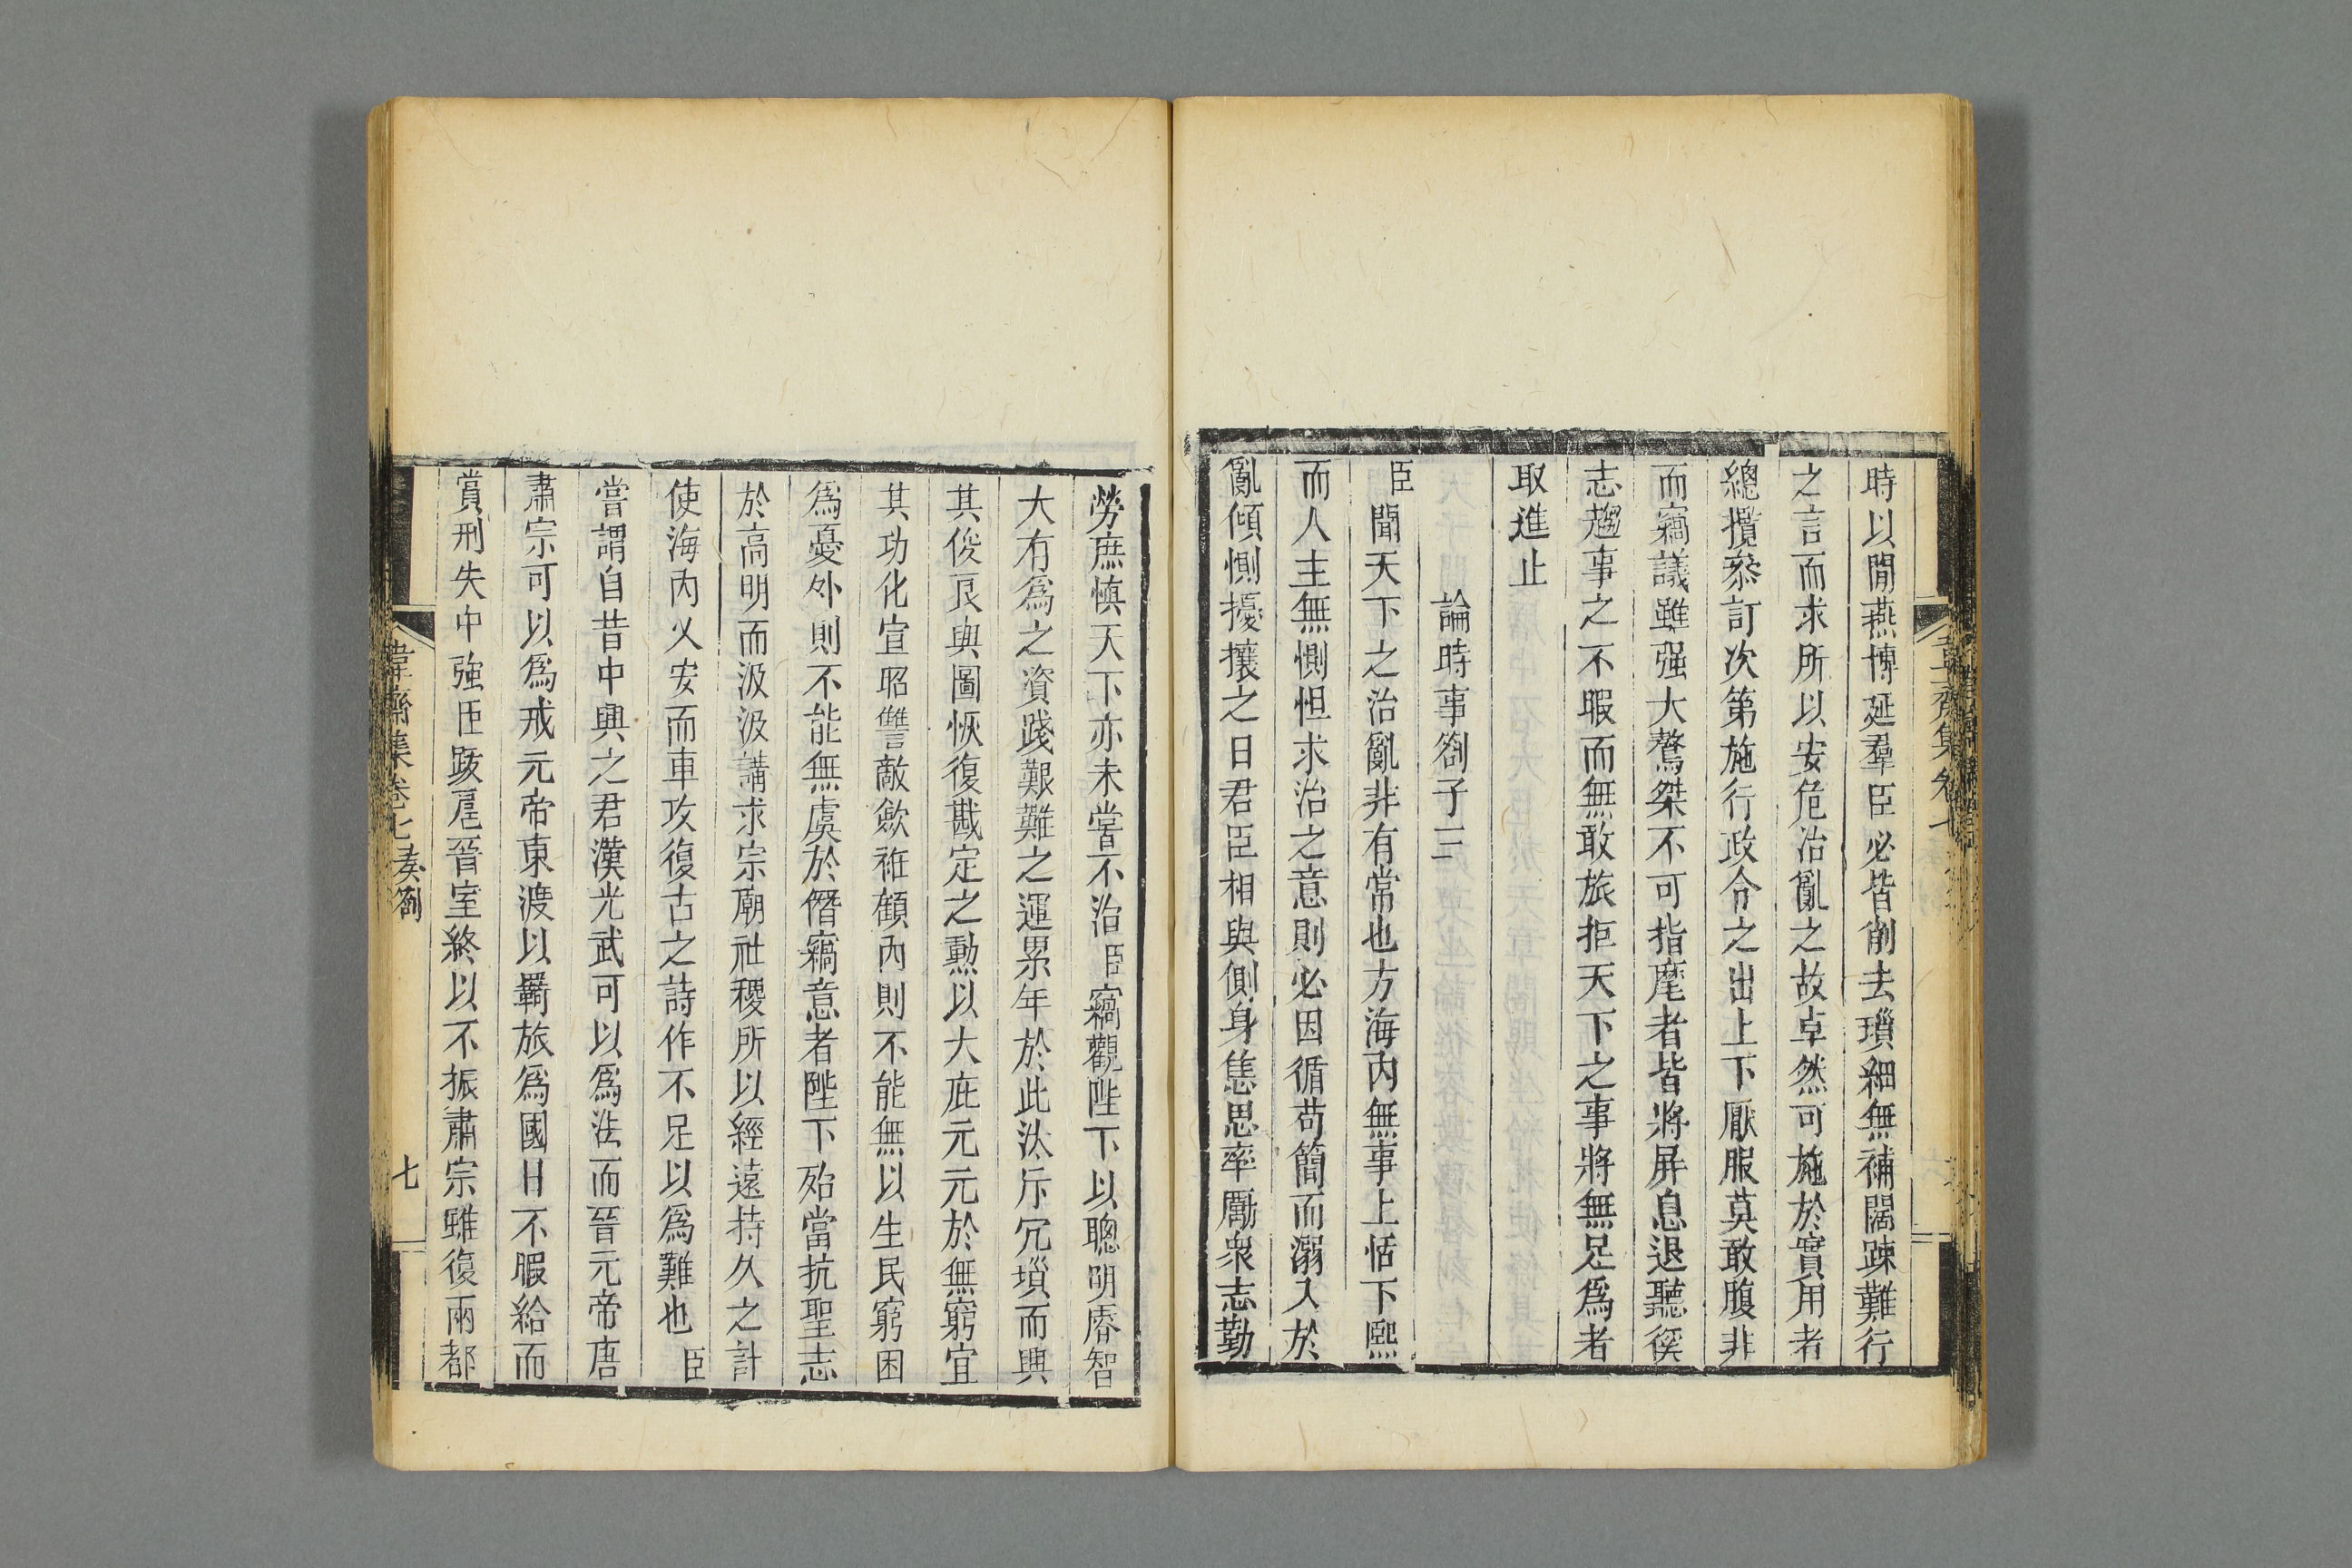 時以閒燕博延羣臣必皆削去瑣細無補闊踈難行
之言而求所以安危治亂之故卓然可施於實用者
總攬叅訂次第施行政令之出上下厭服莫敢腹非
而竊議雖强大驁桀不可指麾者皆將屏息退聽徯
志趨事之不暇而無敢旅拒天下之事將無足爲者
取進止
論時事劄子三
臣聞天下之治亂非有常也方海内無事上恬下熙
而人主無惻怛求治之意則必因循苟簡而溺入於
亂傾惻擾攘之日君臣相與側身焦思率厲衆志勤
勞庶慎天下亦未甞不治臣竊觀陛下以聰明睿智
大有爲之資踐艱難之運累年於此汰斥冗瑣而興
其俊良輿圖恢復戡定之勲以大庇元元於無窮宜
其功化宣昭讐敵歛衽顧内則不能無以生民窮困
爲憂外則不能無虞於僭竊意者陛下殆當抗聖志
於高明而汲汲講求宗廟社稷所以經遠持久之計
使海内乂安而車攻復古之詩作不足以爲難也臣
嘗謂自昔中興之君漢光武可以爲法而晉元帝唐
肅宗可以爲戒元帝東渡以羇旅爲國日不暇給而
賞刑失中強臣跋扈晉室終以不振肅宗雖復兩都
韋齋集卷七 奏劄
七